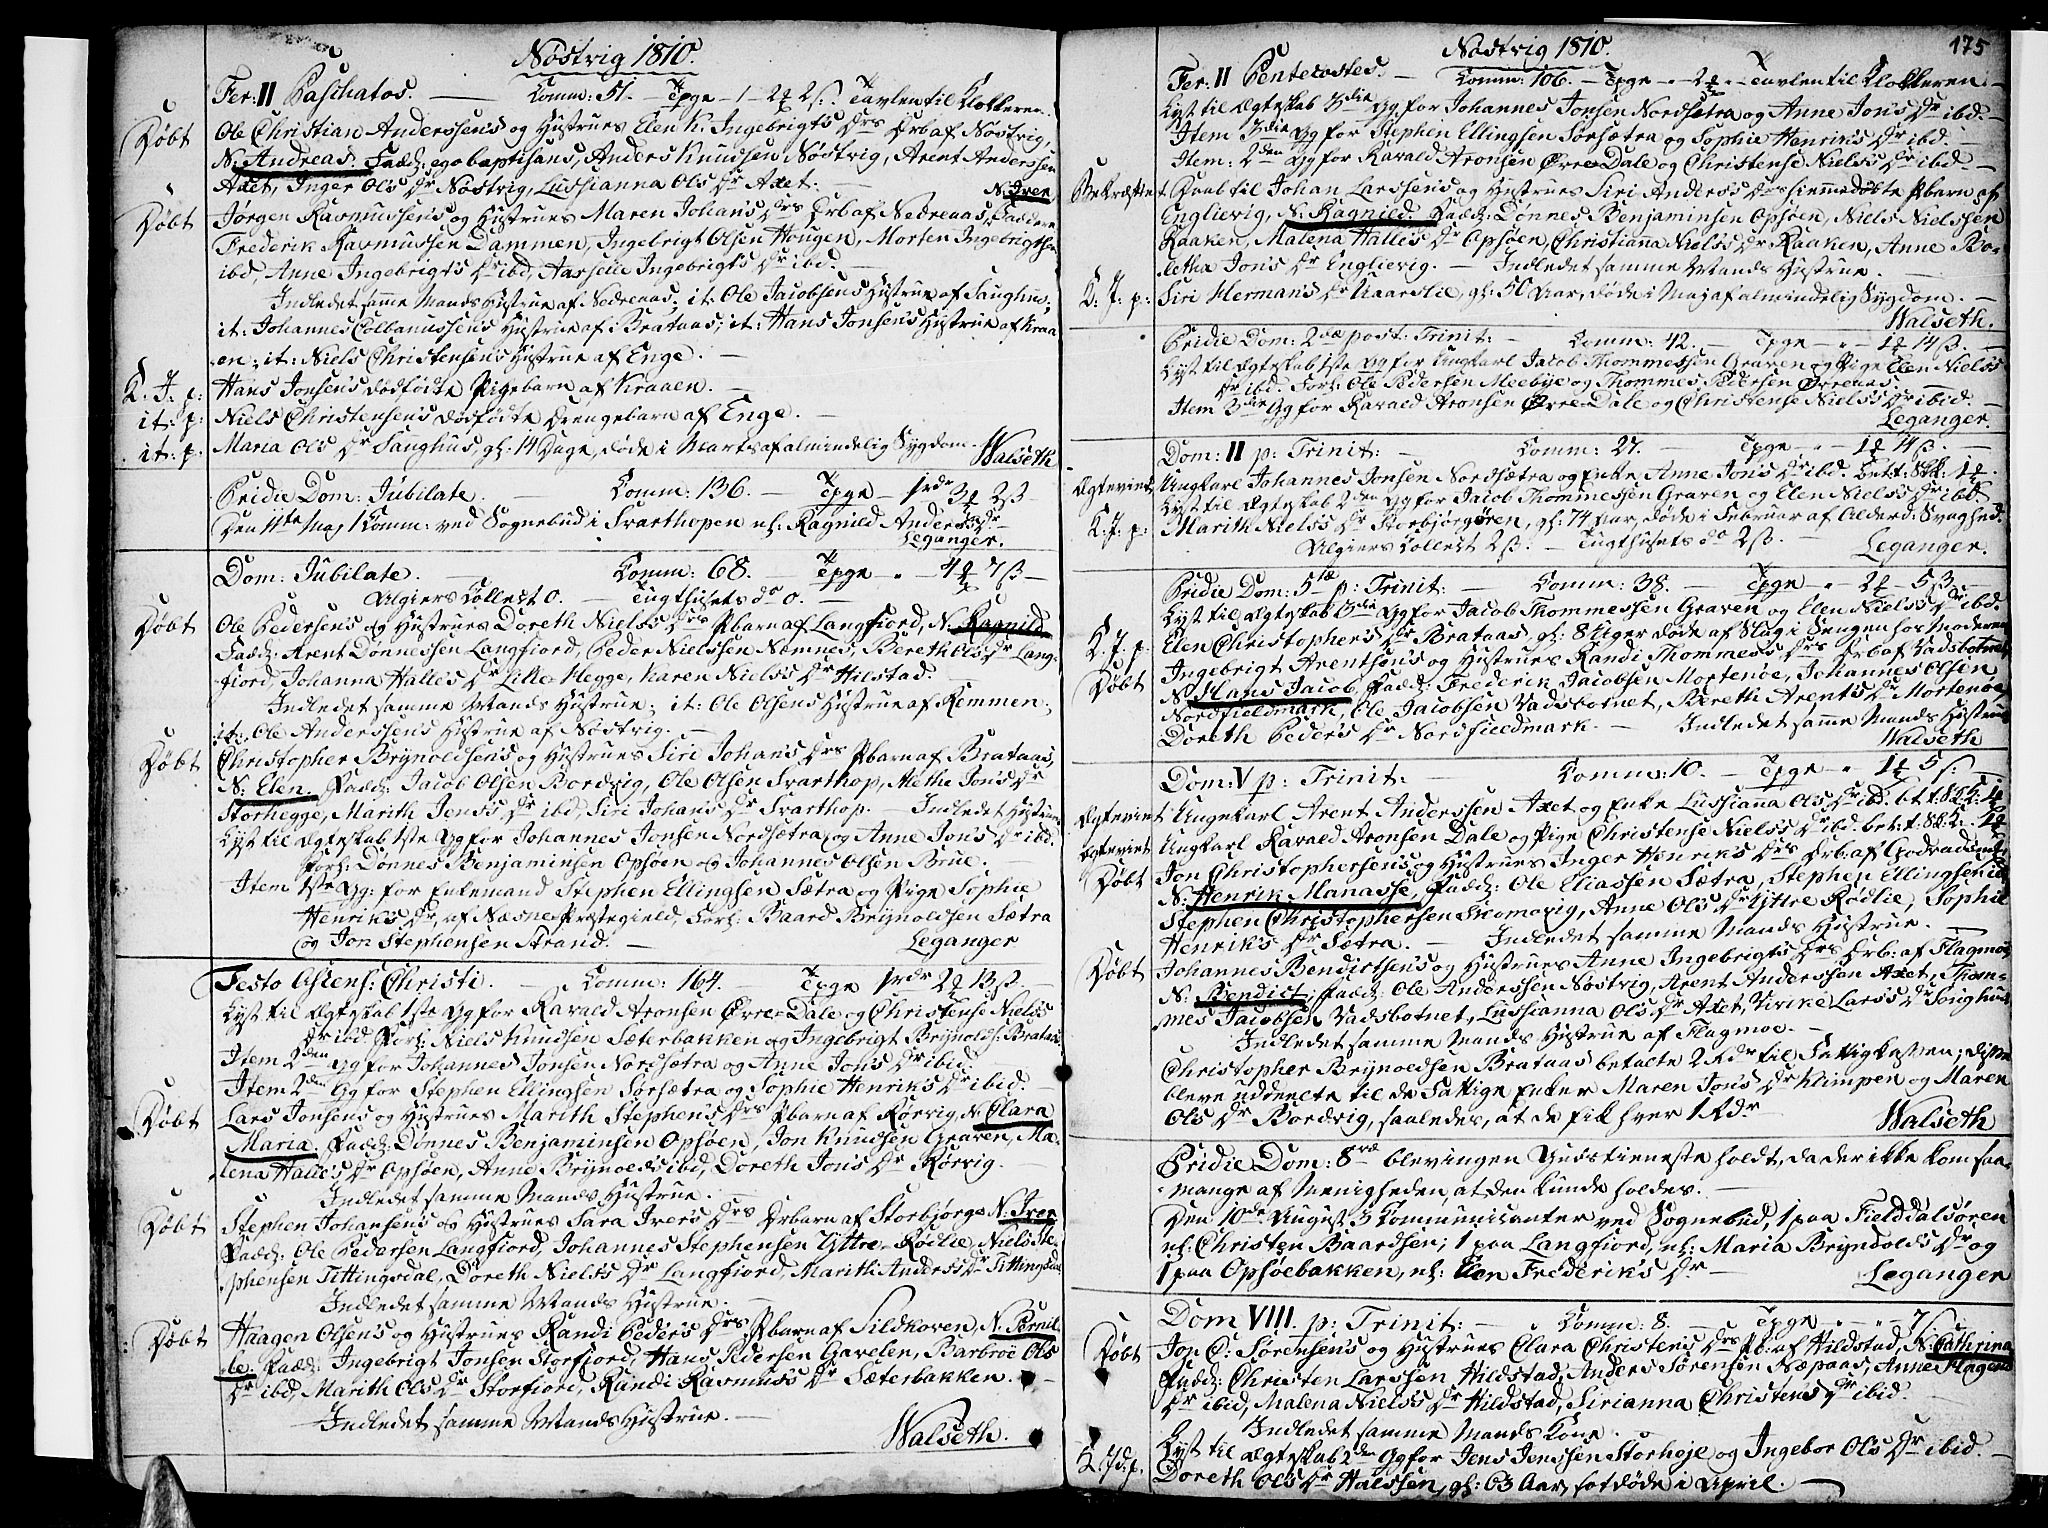 Nøstvig 1810.
Fer: II Paschatos. — Comm: 51. — Tpge — 1 — 2 2 ß. Tavlen til Klokkeren.
Døbt
Ole Christian Anderssens og Hustrues Elen K. Ingebrigts Drs Drb af Nøstvig,
N: Andreas. Fadd: ego baptisans, Anders Knudsen Nøstvig, Arent Anderssen
Axet, Inger Ols Dr Nøstvig, Lussianna Ols Dr Axet. — N: Iver
Døbt
Jørgen Rasmussens og Hustrues Maren Johans Drs Drb af Nedreaas, Faddere
Frederik Rasmussen Dammen, Ingebrigt Olsen Hougen, Morten Ingebrigtsen
ibd, Anne Ingebrigts Dr ibd, Aaselle Ingebrigts Dr ibd. —
Indledet samme Mands Hustrue af Nedreaas; it: Ole Jacobsens Hustrue af Saughus;
it: Johannes Collanussens Hustrue af Brataas; it: Hans Jonsens Hustrue af Kraa
en; it: Niels Christensens Hustrue af Enge. —
K. J. p: Hans Jonsens dødfødte Pigebarn af Kraaen. —
it: p: Niels Christensens dødfødte Drengebarn af Enge. —
it: p. Maria Ols Dr Saughus, gl. 14 Dage, døde i Marts af almindelig Sygdom. Walseth
Pridie Dom: Jubilate. — Comm: 136. — Tpge — 1 rdr 3 2 ß
Den 11te Maj 1 Comm: ved Sognebud i Svarthopen nl: Ragnild Anders Dr —
Leganger.
Dom: Jubilate. — Comm: 68. — Tpge — " — 4 7 ß —
Algiers Collect 0. — Tugthusets do 0. —
Døbt
Ole Pedersens og Hustrues Doreth Niels's Drs Pbarn af Langfiord, N. Ragnild
Fadd: Arent Dønnessen Langfiord, Peder Nielssen Nemnes, Bereth Ols Dr Lang-
fiord, Johanna Halles Dr Lille-Hegge, Karen Niels's Dr Hilstad. —
Indledet samme Mands Hustrue; it: Ole Olsens Hustrue af Remmen;
it: Ole Anderssens Hustrue af Nøstvig. —
Døbt
Christopher Brynoldsens og Hustrues Siri Johans Drs Pbarn af Brataas,
N: Elen. Fadd: Jacob Olsen Bordvig, Ole Olsen Svarthop, Methe Jons Dr
Storhegge, Marith Jens's Dr ibd, Siri Johans Dr Svarthop. — Indledet Hustruen
Lyst til Ægteskab 1ste Gg for Johannes Jonsen Nordsætra og Anne Jons Dr ibd.
Forl: Dønnes Benjaminsen Opsøen og Johannes Olsen Brue. —
Item 1ste Gg: for Enkemand Stephen Ellingsen Sætra og Pige Sophie
Henriks Dr, af Næsne Præstegield, Forl: Baard Brynoldsen Sætra
og Jon Stephensen Strand. — Leganger
Festo Ascens: Christi. — Comm: 164. — Tpge 1 rdr 2 13 ß —
Lyst til Ægteskab 1ste Gg for Ravald Aronsen Øvre-Dale og Christense Niels's
Dr ibd Forl: Niels Knudsen Sæterbakken og Ingebrigt Brynolds: Brataas
Item 2den Gg for Johannes Jonsen Nordsætra og Anne Jons Dr ibid.
Item 2den Gg for Stephen Ellingsen Sørsætra og Sophie Henriks Dr ibid. —
Døbt
Lars Jonsens og Hustrues Marith Stephens Drs Pbarn af Rørvig, N: Clara
Maria. Fadd: Dønnes Benjaminsen Opsøen, Jon Knudsen Graven, Ma-
lena Halles Dr Opsøen, Anne Brynoeds ibd, Doreth Jons Dr Rørvig. —
Indledet samme Mands Hustrue. —
Døbt
Stephen Johansens og Hustrues Sara Ivers Drs Drbarn af Storbjørge N: Iver
Fadd: Ole Pedersen Langfiord, Johannes Stephensen Yttre-Rødlie, Niels Ste-
phensen Tittingsdal, Doreth Niels's Dr Langfiord, Marith Anders Dr Tittingsdal
Indledet samme Mands Hustrue. —
Døbt
Haagen Olsens og Hustrues Randi Peders Drs Pbarn af Sildhoven, N. Pernil
le. Fadd: Ingebrigt Jonsen Storfiord, Hans Pedersen Gavelen, Barbroe Ols
Dr ibd, Marith Ols Dr Storfiord, Randi Rasmuss Dr Sæterbakken. —
Indledet samme Mands Hustrue. —
Walseth.
Nøstvig 1810.
175
Fer: II Pentecostes. — Comm: 106. — Tpge — " 2 " — Tavlen til Klokkeren —
Lyst til Ægteskab 3die Gg for Johannes Jonsen Nordsætra og Anne Jons Dr ibd. —
Item 3die Gg for Stephen Ellingsen Sørsætra og Sophie Henriks Dr ibd. —
Item: 2den Gg for Ravald Aronsen Øvre-Dale og Christense Niels's Dr ibd —
Bekræftet Daab til Johan Larssens og Hustrues Siri Anders's Drs hiemmedøbte Pbarn af
Englievig, N. Ragnild. Fadd: Dønnes Benjaminsen Opsøen, Niels Nielssen
Raaken, Malena Halles Dr Opsøen, Christiana Niels's Dr Raaken, Anne Bo-
letha Jons Dr Englievig. — Indledet samme Mands Hustrue. —
K: J: p: Siri Hermans Dr Kaarslie, gl: 50 Aar, døde i Maj af almindelig Sygdom. —
Walseth.
Pridie Dom: 2dæ post: Trinit: — Comm: 42. — Tpge — " — 1 14 ß. —
Lyst til Ægteskab 1ste Gg for Ungkarl Jacob Thommessen Graven og Pige Elen Niels's
Dr ibd. Forl: Ole Pedersen Meebye og Thommes Pedersen Øvrenes.
Item 3die Gg for Ravald Aronsen Øvre-Dale og Christense Niels's Dr ibid: —
Leganger.
Dom: II p: Trinit: — Comm: 27. — Tpge — " — 1 14 ß —
Ægteviet Ungkarl Johannes Jonsen Nordsætra og Enke Anne Jons Dr ibd. Bett: Skk: 1
Lyst til Ægteskab 2den Gg for Jacob Thommessen Graven og Elen Niels's Dr ibd
K: J: p: Marith Niels's Dr Storbjørgøren, gl: 74 Aar, døde i Februar af Alderd: Svaghed.
Algiers Collect 2 ß. — Tugthusets do 2 ß. — Leganger.
Pridie Dom: 5tæ p: Trinit: — Comm: 38. Tpge — " — 2 — 5 ß. —
Lyst til Ægteskab 3die Gg for Jacob Thommessen Graven og Elen Niels's Dr ibd.
K. J. p. Elen Christophers Dr Brataas, gl: 8 Uger døde af Slag i Sengen hos Moderen
Døbt
Ingebrigt Arentsens og Hustrues Randi Thommes's Drs Drb af Vadsbotnet
N. Hans Jacob, Fadd: Frederik Jacobsen Mortenøe, Johannes Olsen
Nordfieldmark, Ole Jacobsen Vadsbotnet, Bereth Arents Dr Mortenøe
Doreth Peders Dr Nordfieldmark. — Indledet samme Mands Hustrue
Walseth
Dom: V p: Trinit: — Comm: 10. — Tpge " 1 5 ß. —
Ægteviet Ungkarl Arent Anderssen Axet og Enke Lussianna Ols Dr ibd.
Ægteviet Ungkarl Ravald Aronsen Dale og Pige Christense Niels's Dr ibd.
Døbt
Jon Christophersens og Hustrues Inger Henriks Drs Drb: af
N: Henrik Manasse, Fadd: Ole Eliassen Sætra, Stephen Ellingsen ibd,
Stephen Christophersen Sieomovig, Anne Ols Dr Yttre Rødlie, Sophie
Henriks Dr Sætra. — Indledet samme Mands Hustrue.
Døbt
Johannes Bendictsens og Hustrues Anne Ingebrigts Drs Drb: af Flagmoe
N: Bendict, Fadd: Ole Anderssen Nøstvig, Arent Anderssen Axet, Thom-
mes Jacobsen Vadsbotnet, Lussianna Ols Dr Axet, Virike Lars's Dr Soughus
Indledet samme Mands Hustrue af Flagmoe. —
Christopher Brynoldsen Brataas betalte 2 Rdr til Fattigkassen; disse
bleve uddeelte til de Fattige Enker Maren Jons Dr Klimpen og Maren
Ols Dr Bordvig, saaledes, at de fik hver 1 Rdr — Walseth
Pridie Dom: 8væ blev ingen Gudstieneste holdt, da der ikke kom saa
mange af Menigheden, at den kunde holdes. —
Den 10de August 3 Communicanter ved Sognebud, 1 paa Fielddalsøren
nl: Christen Baardsen; 1 paa Langfiord, nl: Maria Brynolds Dr og
1 paa Opsøebakken, nl: Elen Frederiks Dr — Leganger
Dom VIII. p: Trinit: — Comm: 8. — Tpge — " — " 7 ß.
Døbt
Jop C: Sørensens og Hustrues Clara Christens Drs Pb: af Hildstad, N: Cathrina
Fadd: Christen Larssen Hildstad, Anders Sørensen Næpaas, Anne Hagens
Dr ibid, Malena Niels's Dr Hildstad, Sirianna Christens Dr ibid.
Indledet samme Mands Kone. —
Lyst til Ægteskab 2den Gg for Jens Jenssen Storhøje og Ingebor Ols Dr ibid. —
K. Jd: p. Doreth Ols Dr Halssen, gl: 63 Aar, døde i April. —